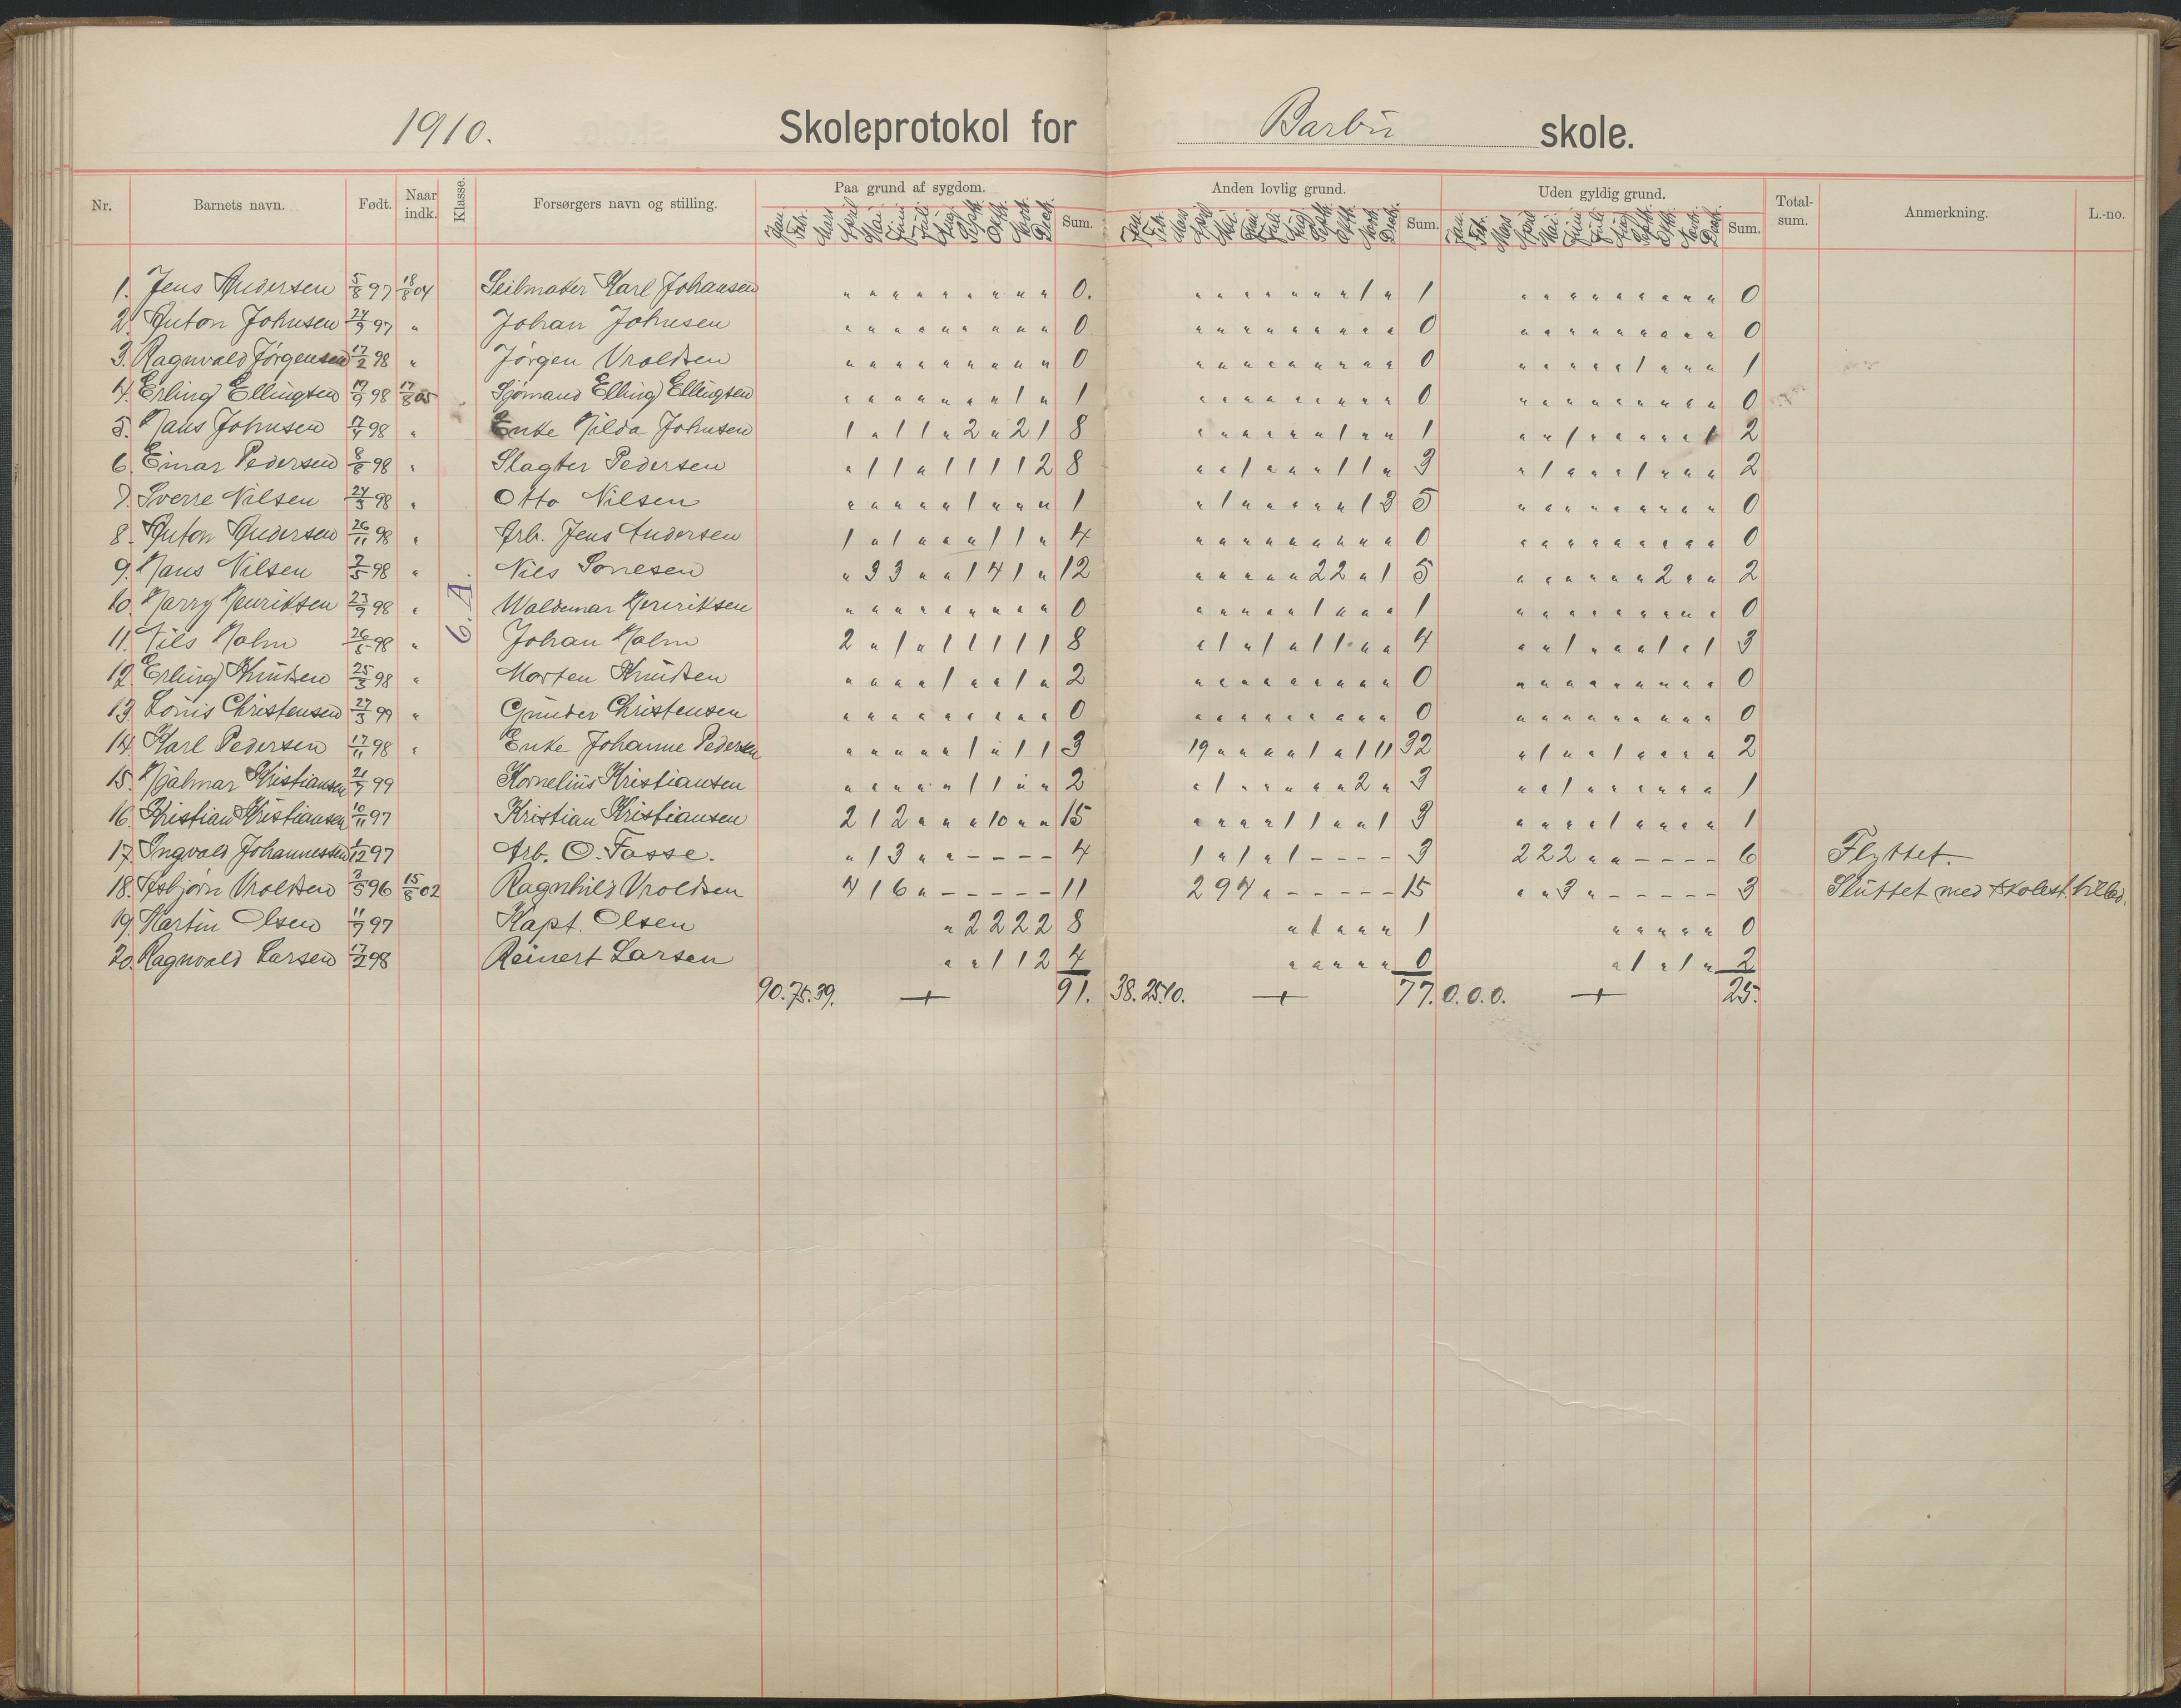 1910. Skoleprotokol for Barbu skole.
Nr. Barnets navn. Født. Naar indk. Klasse. Forsørgers navn og stilling. Paa grund af sygdom. Sum. Anden lovlig grund. Sum. Uden gyldig grund. Sum. Total-sum. Anmerkning. L.-no.
Jan. Febr. Mars April Mai Juni Juli Aug. Septb. Oktb. Novb. Decb. Jan. Febr. Mars April Mai Juni Juli Aug. Septb. Oktb. Novb. Decb. Jan. Febr. Mars April Mai Juni Juli Aug. Septb. Oktb. Novb. Decb.
6. A.
1. Jens Andersen 5/8 97 18/8 04 Seilmaker Karl Johansen " " " " " " " " " 0. " " " " " " " 1 " 1 " " " " " " " " " 0
2. Anton Johnsen 24/9 97 " Johan Johnsen " " " " " " " " " 0 " " " " " " " " " 0 " " " " " " " " " 0
3. Ragnvald Jörgensen 17/2 98 " Jörgen Vroldsen " " " " " " " " " 0 " " " " " " " " " 0 " " " " " 1 " " " 1
4. Erling Ellingsen 19/9 98 17/8 05 Sjömand Elling Ellingsen " " " " " " " 1 " 1 " " " " " " " " " 0 " " " " " " " " " 0
5. Hans Johnsen 17/4 98 " Enke Hilda Johnsen 1 " 1 1 " 2 " 2 1 8 " " " " " " 1 " " 1 " " 1 " " " " " 1 2
6. Einar Pedersen 8/8 98 " Slagter Pedersen " 1 1 " 1 1 1 1 2 8 " " 1 " " " 1 1 " 3 " 1 " " " 1 " " " 2
7. Sverre Nilsen 24/3 98 " Otto Nilsen " " " " " 1 " " " 1 " 1 " " " " " 1 3 5 " " " " " " " " " 0
8. Anton Andersen 26/11 98 " Arb. Jens Andersen 1 " 1 " " " 1 1 " 4 " " " " " " " " " 0 " " " " " " " " " 0
9. Hans Nilsen 2/5 98 " Nils Sonesen " 3 3 " " 1 4 1 " 12 " " " " " 2 2 " 1 5 " " " " " " 2 " " 2
10. Harry Henriksen 23/9 98 " Waldemar Henriksen " " " " " " " " " 0 " " " " " 1 " " " 1 " " " " " " " " " 0
11. Nils Holm 26/8 98 " Johan Holm 2 " 1 " 1 1 1 1 1 8 " 1 " 1 " 1 1 " " 4 " " 1 " " " 1 " 1 3
12. Erling Knudsen 25/3 98 " Morten Knudsen " " " " 1 " " 1 " 2 " " " " " " " " " 0 " " " " " " " " " 0
13. Louis Christensen 27/3 99 " Gunder Christensen " " " " " " " " " 0 " " " " " " " " " 0 " " " " " " " " " 0
14. Karl Pedersen 17/11 98 " Enke Johanne Pedersen " " " " " 1 " 1 1 3 19 " " " " 1 " 1 11 32 " 1 " " 1 " " " " 2
15. Hjalmar Kristiansen 21/7 99 Kornelius Kristiansen " " " " " 1 1 " " 2 " 1 " " " " " 2 " 3 " " 1 " " " " " " 1
16. Kristian Kristiansen 10/11 97 Kristian Kristiansen 2 1 2 " " " 10 " " 15 " " " " 1 1 " " 1 3 " " " " 1 " " " " 1
17. Ingvald Johannessen 1/12 97 Arb. O. Fosse. " 1 3 " " - - - - 4 1 " 1 " 1 - - - - 3 2 2 2 " " - - - - 6 Flyttet.
18. Asbjörn Vroldsen 3/5 96 15/8 02 Ragnhild Vroldsen 4 1 6 " - - - - - 11 2 9 4 " - - - - - 15 " " 3 " - - - - - 3 Sluttet med skolest. tillad.
19. Martin Olsen 11/9 97 Kapt. Olsen " 2 2 2 2 8 " 1 " " " 1 " " " " " 0
20. Ragnvald Larsen 17/2 98 Reinert Larsen " " 1 1 2 4 " " " " " 0 " 1 " 1 " 2
90. 75. 39. + 91. 38. 25. 10. + 77. 0. 0. 0. + 25.